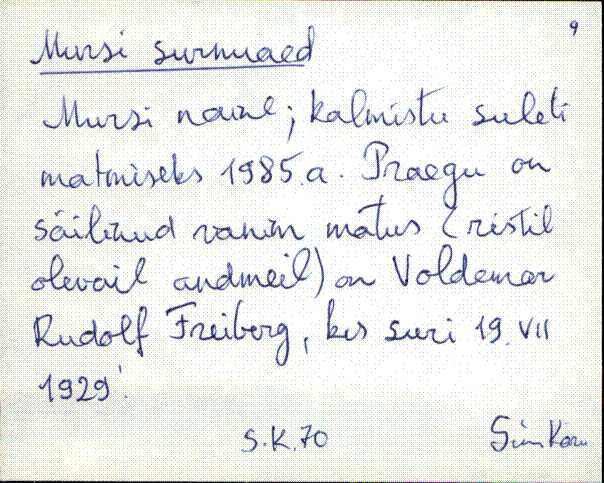 9
Mursi surnuaed
Mursi naine; kalmistu suleti
matmiseks 1985.a. Praegu on
säilinud vanim matus (ristil
olevail andmeil) on Voldemar
Rudolf Freiberg, kes suri 19. VII
1929.
S.K.70